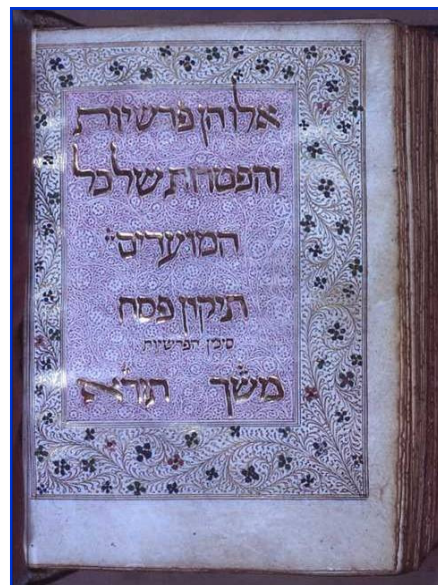 אלוהן פרשיות
והפטרות של כל
המועדים:
תיקון פסח
סימן הפרשיות
משך תורא